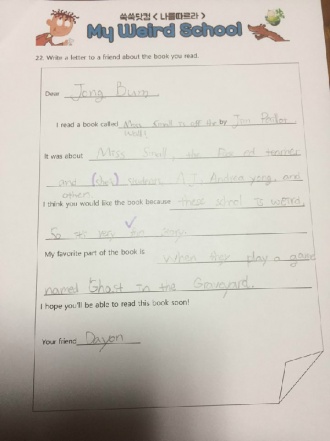 쏙쏙닷컴 < 나를따르라 >
My Weird School
22. Write a letter to a friend about the book you read.
Dear Jong Bum
I read a book called Miss Small is off the by
wall!
It was about Miss Small, teacher
and students A.J. Andrea, and
others
I think you would like the book because these school is weird,
So very
My favorite part of the book is When they play a game
named Ghost in the Graveyard.
I hope you'll be able to read this book soon!
Your friend Dayon